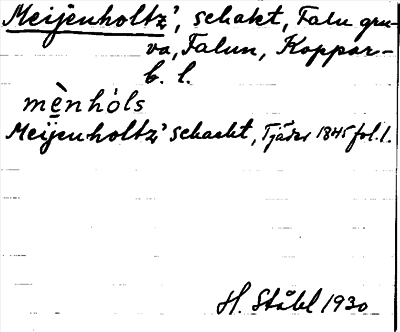 Meijenholtz', schakt, Falu gru-
va, Falun, Koppar-
b. l.
mènhòls
Meijenholtz' schacht, Tjäder 1845 fol. 1.
H. Ståhl 1930